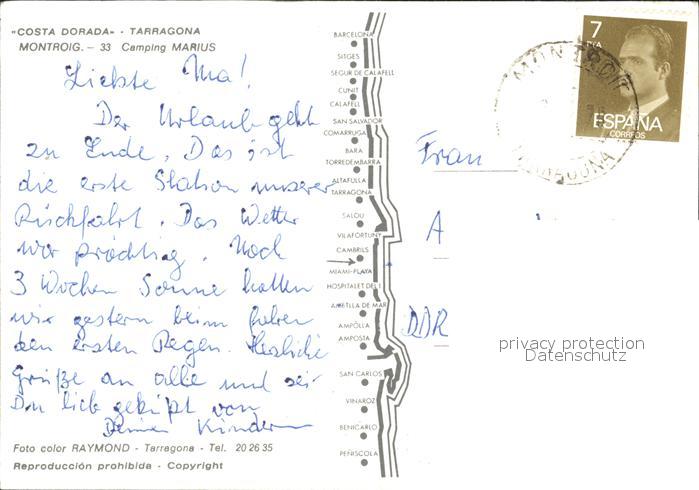 "COSTA DORADA" - TARRAGONA
MONTROIG. - 33 Camping MARIUS
Liebste Ma!
Der Urlaub geht
zu Ende. Das ist
die erste Station unserer
Rückfahrt. Das Wetter
war prächtig. Nach
3 Wochen Sonne hatten
wir gestern beim fahren
den ersten Regen. Herzliche
Grüße an alle und sei
Du lieb geküßt von
Deinen Kindern
Foto color RAYMOND - Tarragona - Tel. 20 26 35
Reproducción prohibida - Copyright
BARCELONA
SITGES
SEGUR DE CALAFELL
CUNIT
CALAFELL
SAN SALVADOR
COMARRUGA
BARA
TORREDEMBARRA
ALTAFULLA
TARRAGONA
SALOU
VILAFORTUNY
CAMBRILS
MIAMI-PLAYA
HOSPITALET DEL I.
AMETLLA DE MAR
AMPOLLA
AMPOSTA
SAN CARLOS
VINAROZ
BENICARLO
PEÑISCOLA
7
PTA
ESPAÑA
CORREOS
MONTROIG
TARRAGONA
Frau
A
DDR
privacy protection
Datenschutz